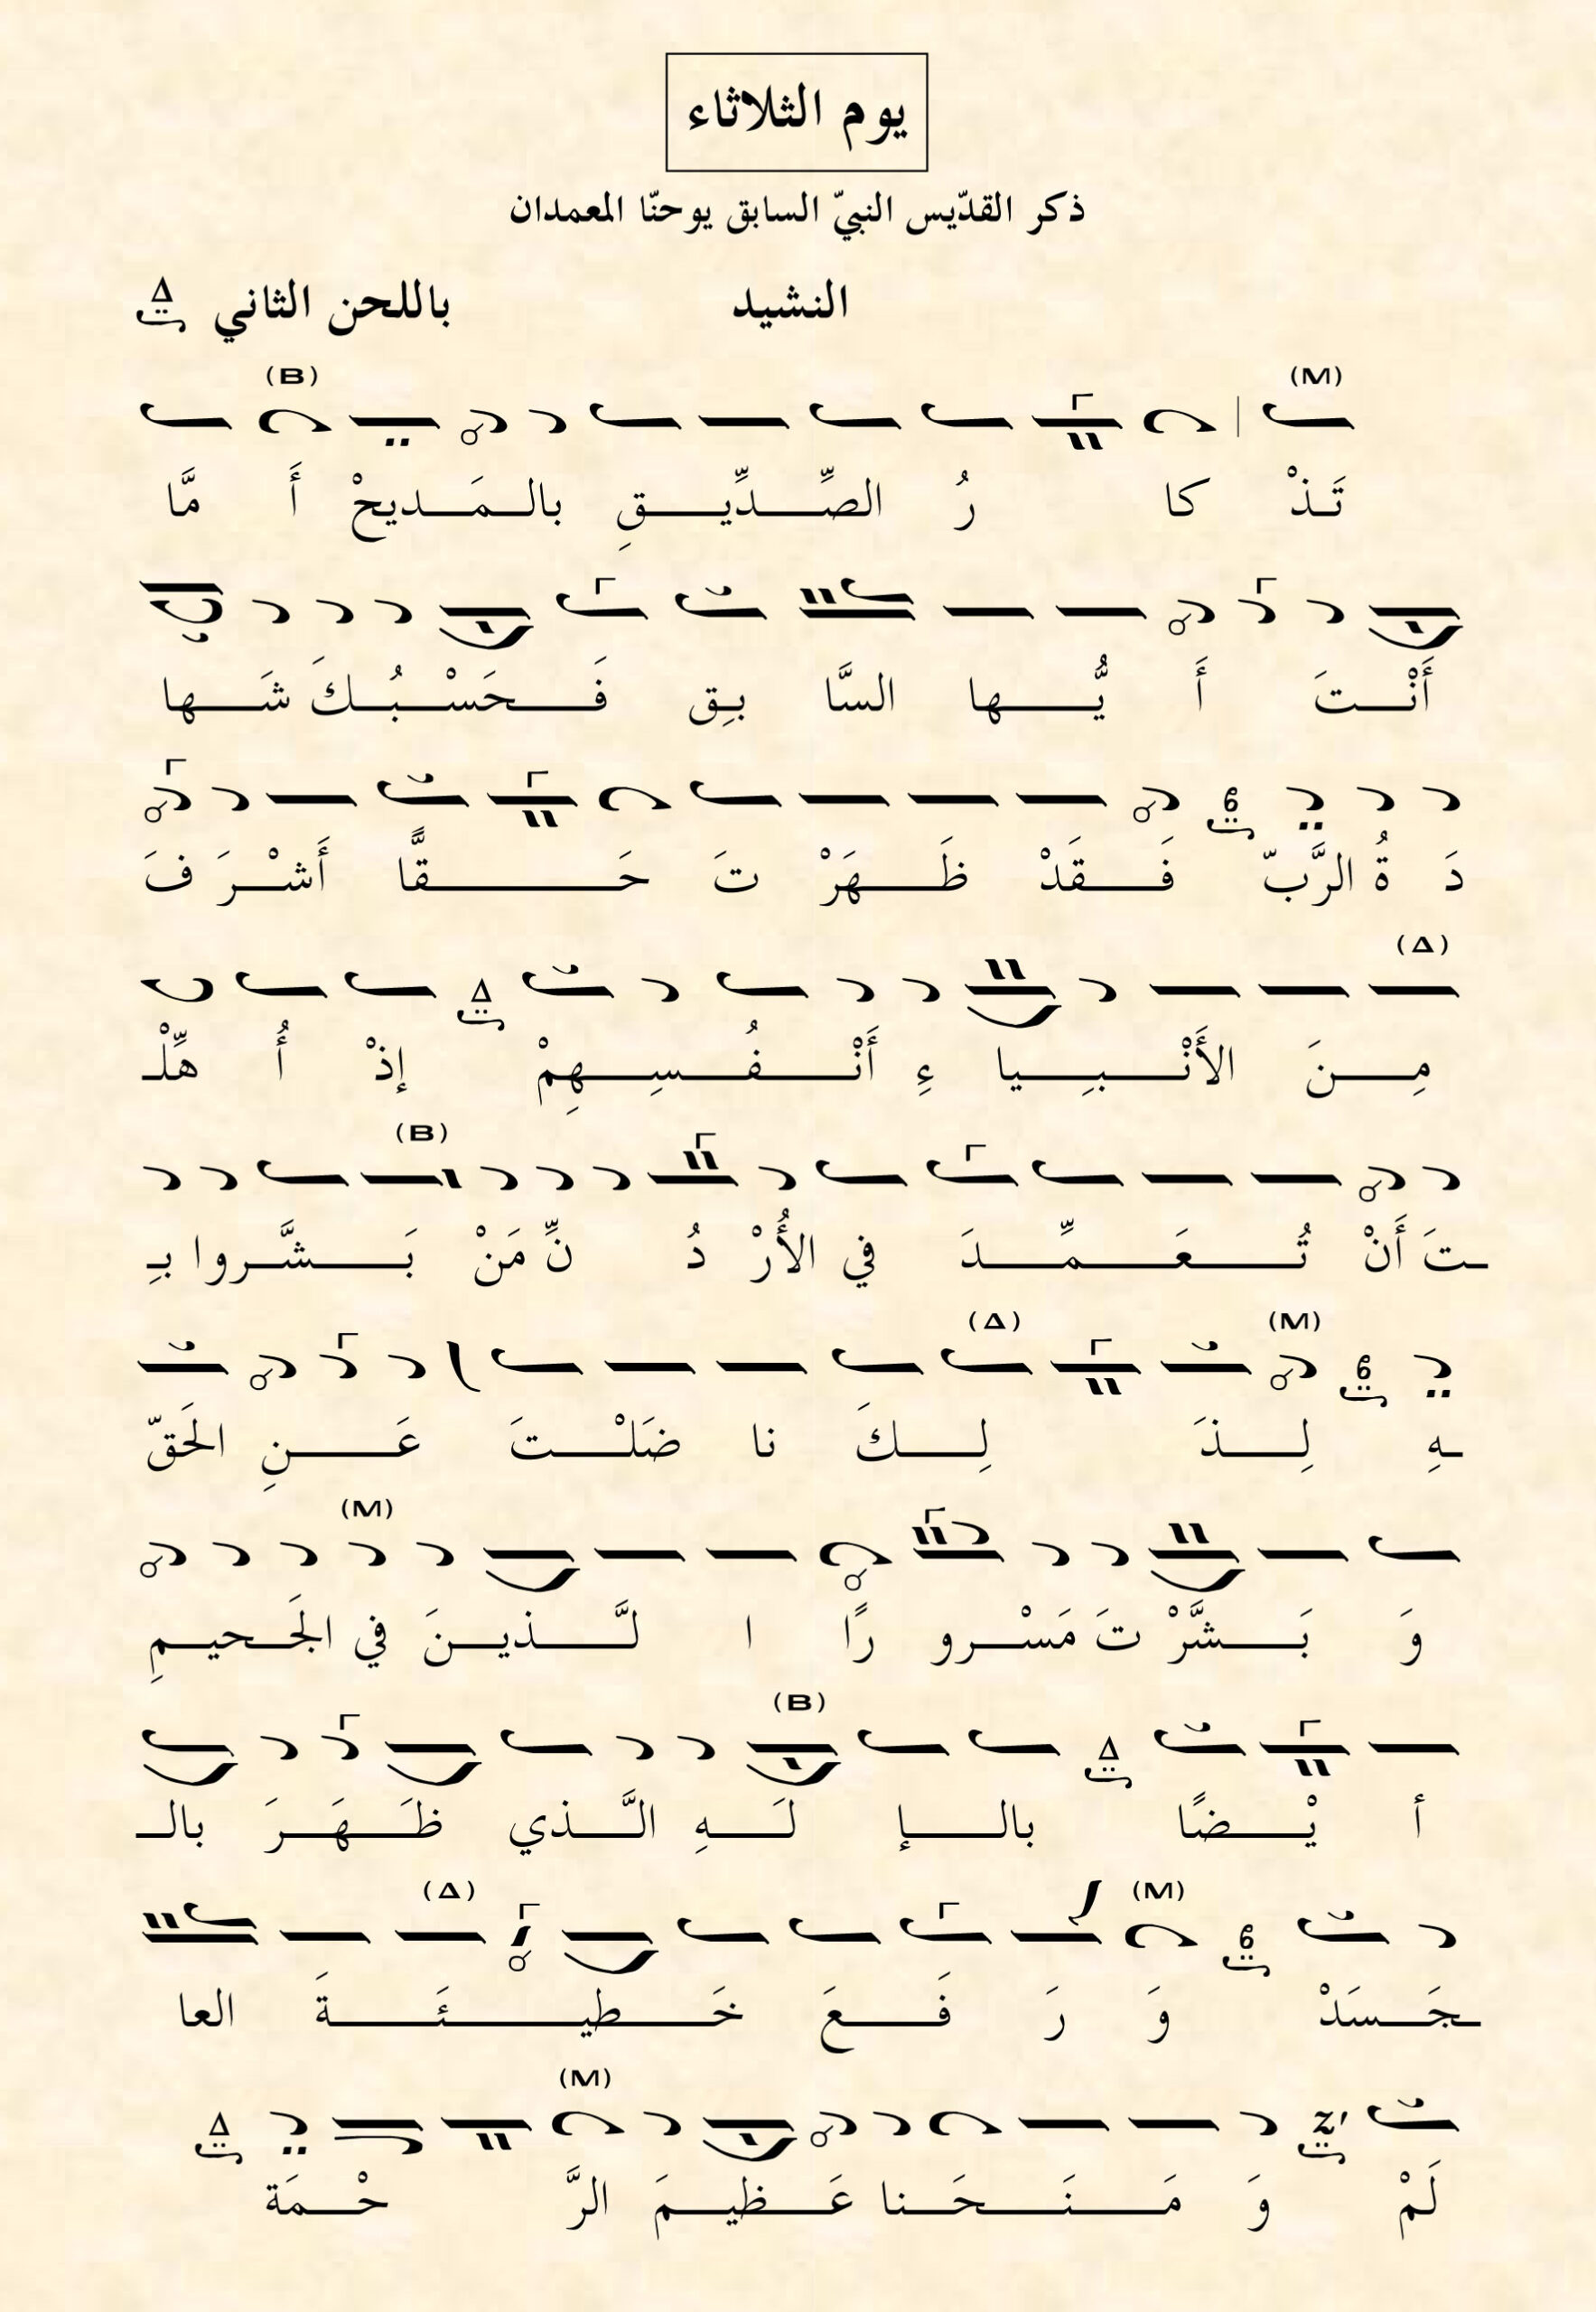 يوم الثلاثاء
ذكر القدّيس النبيّ السابق يوحنّا المعمدان
النشيد باللحن الثاني Δ
(M) (B)
تَـذْ كا رُ الصِّـــدِّيـــقِ بالـــمَـــديحْ أَ مَّا
أَنْـــتَ أَ يُّـــها السَّا بِق فَـــحَسْـــبُـــكَ شَـــها
دَ ةُ الرَّبّ فَـــقَدْ ظَـــهَرْ تَ حَـــقًّا أَشْـــرَ فَ
(Δ)
مِـــنَ الأَنْـــبِـــيا ءِ أَنْـــفُـــسِـــهِمْ إذْ أُ هِّلْـ
(B)
ـتَ أَنْ تُـــعَـــمِّـــدَ في الأُرْ دُ نِّ مَنْ بَـــشَّـــروا بِـ
(M) (Δ)
ـهِ لِـــذَ لِـــكَ نا ضَلْـــتَ عَـــنِ الحَقّ
(M)
وَ بَـــشَّرْ تَ مَسْـــرو رًا ا لَّـــذيـــنَ في الجَـــحيـــمِ
(B)
أ يْـــضًا بالـــإ لَـــهِ الَّـــذي ظَـــهَـــرَ بالـــ
(M) (Δ)
ـجَـــسَدْ وَ رَ فَـــعَ خَـــطيـــئَـــةَ العا
(M)
لَمْ وَ مَـــنَـــحَـــنا عَـــظيـــمَ الرَّ حْـــمَة